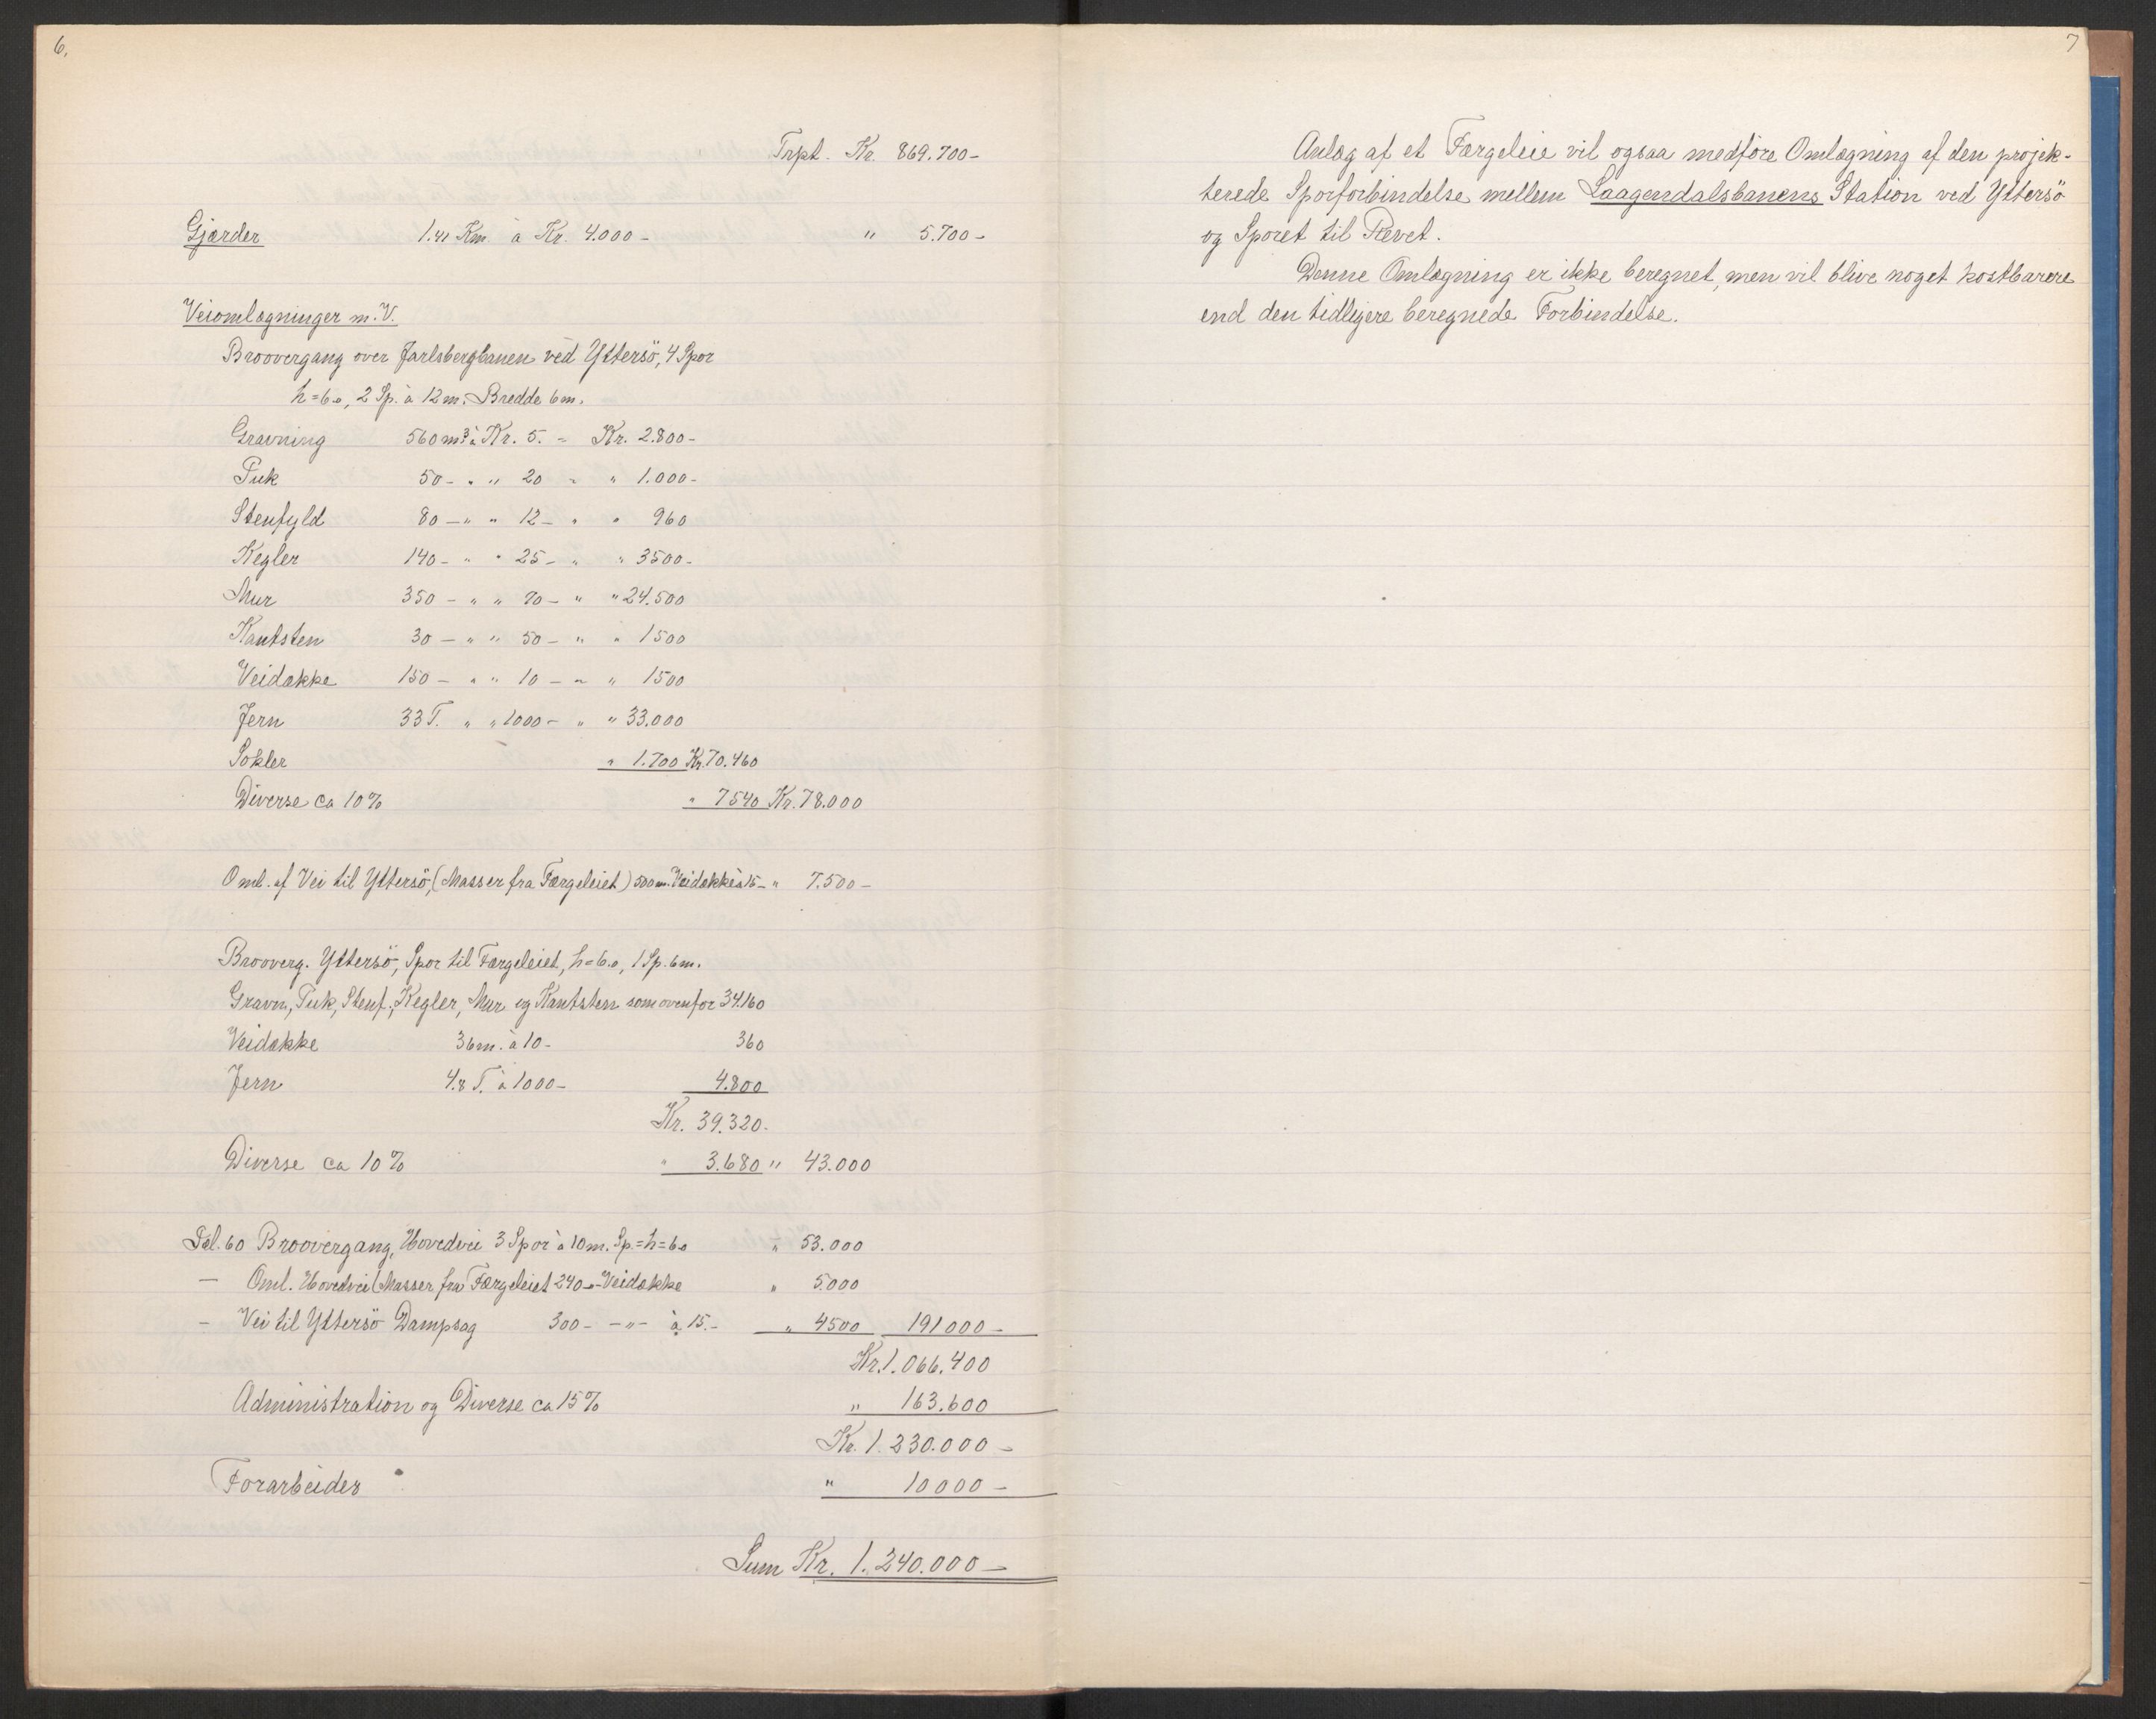 6.
Trpt. Kr. 869.700-
Gjærder 1.41 Km. à Kr. 4.000- " 5.700-
Veiomlægninger m.V.
Broovergang over Jarlsbergbanen ved Yttersö, 4 Spor
h=6.0, 2 Sp. à 12m. Bredde 6m.
Gravning 560 m³ à Kr. 5. - Kr. 2.800-
Puk 50- " " 20 - " 1.000-
Stenfyld 80 -" " 12- " " 960
Kegler 140- " " 25- " " 3500-
Mur 350 - " " 70- " " 24.500
Kantsten 30 - " " 50- " " 1500
Veidække 150 - " " 10 - " " 1500
Jern 33 T. " " 1000- " " 33.000
Sokler " 1.700 Kr. 70.460
Diverse ca 10% " 7540 Kr. 78.000
Oml. af Vei til Yttersö, (Masser fra Færgeleiet) 500 m. Veidække à 15- " 7.500-
Brooverg. Yttersö, Spor til Færgeleiet, h=6.0, 1 Sp. 6m.
Gravn, Puk, Stenf., Kegler, Mur og Kantsten som ovenfor 34.160
Veidække 36m. à 10- 360
Jern 4.8 T. à 1000- 4.800
Kr. 39.320.
Diverse ca 10% " 3.680 " 43.000
Pæl. 60 Broovergang, Hovedvei 3 Spor à 10m. Sp. = h=6.0 " 53.000
- Oml. Hovedvei (Masser fra Færgeleiet 240 m Veidække " 5.000
- Vei til Yttersö Dampsag 300- -"- à 15.- " 4500 191000-
Kr. 1.066.400
Administration og Diverse ca 15% " 163.600
Kr. 1.230.000-
Forarbeider " 10000-
Sum Kr. 1.240.000-
7
Anlæg af et Færgeleie vil ogsaa medföre Omlægning af den projek-
terede Sporforbindelse mellem Laagendalsbanens Station ved Yttersö
og Sporet til Revet.
Denne Omlægning er ikke beregnet, men vil blive noget kostbarere
end den tidligere beregnede Forbindelse.